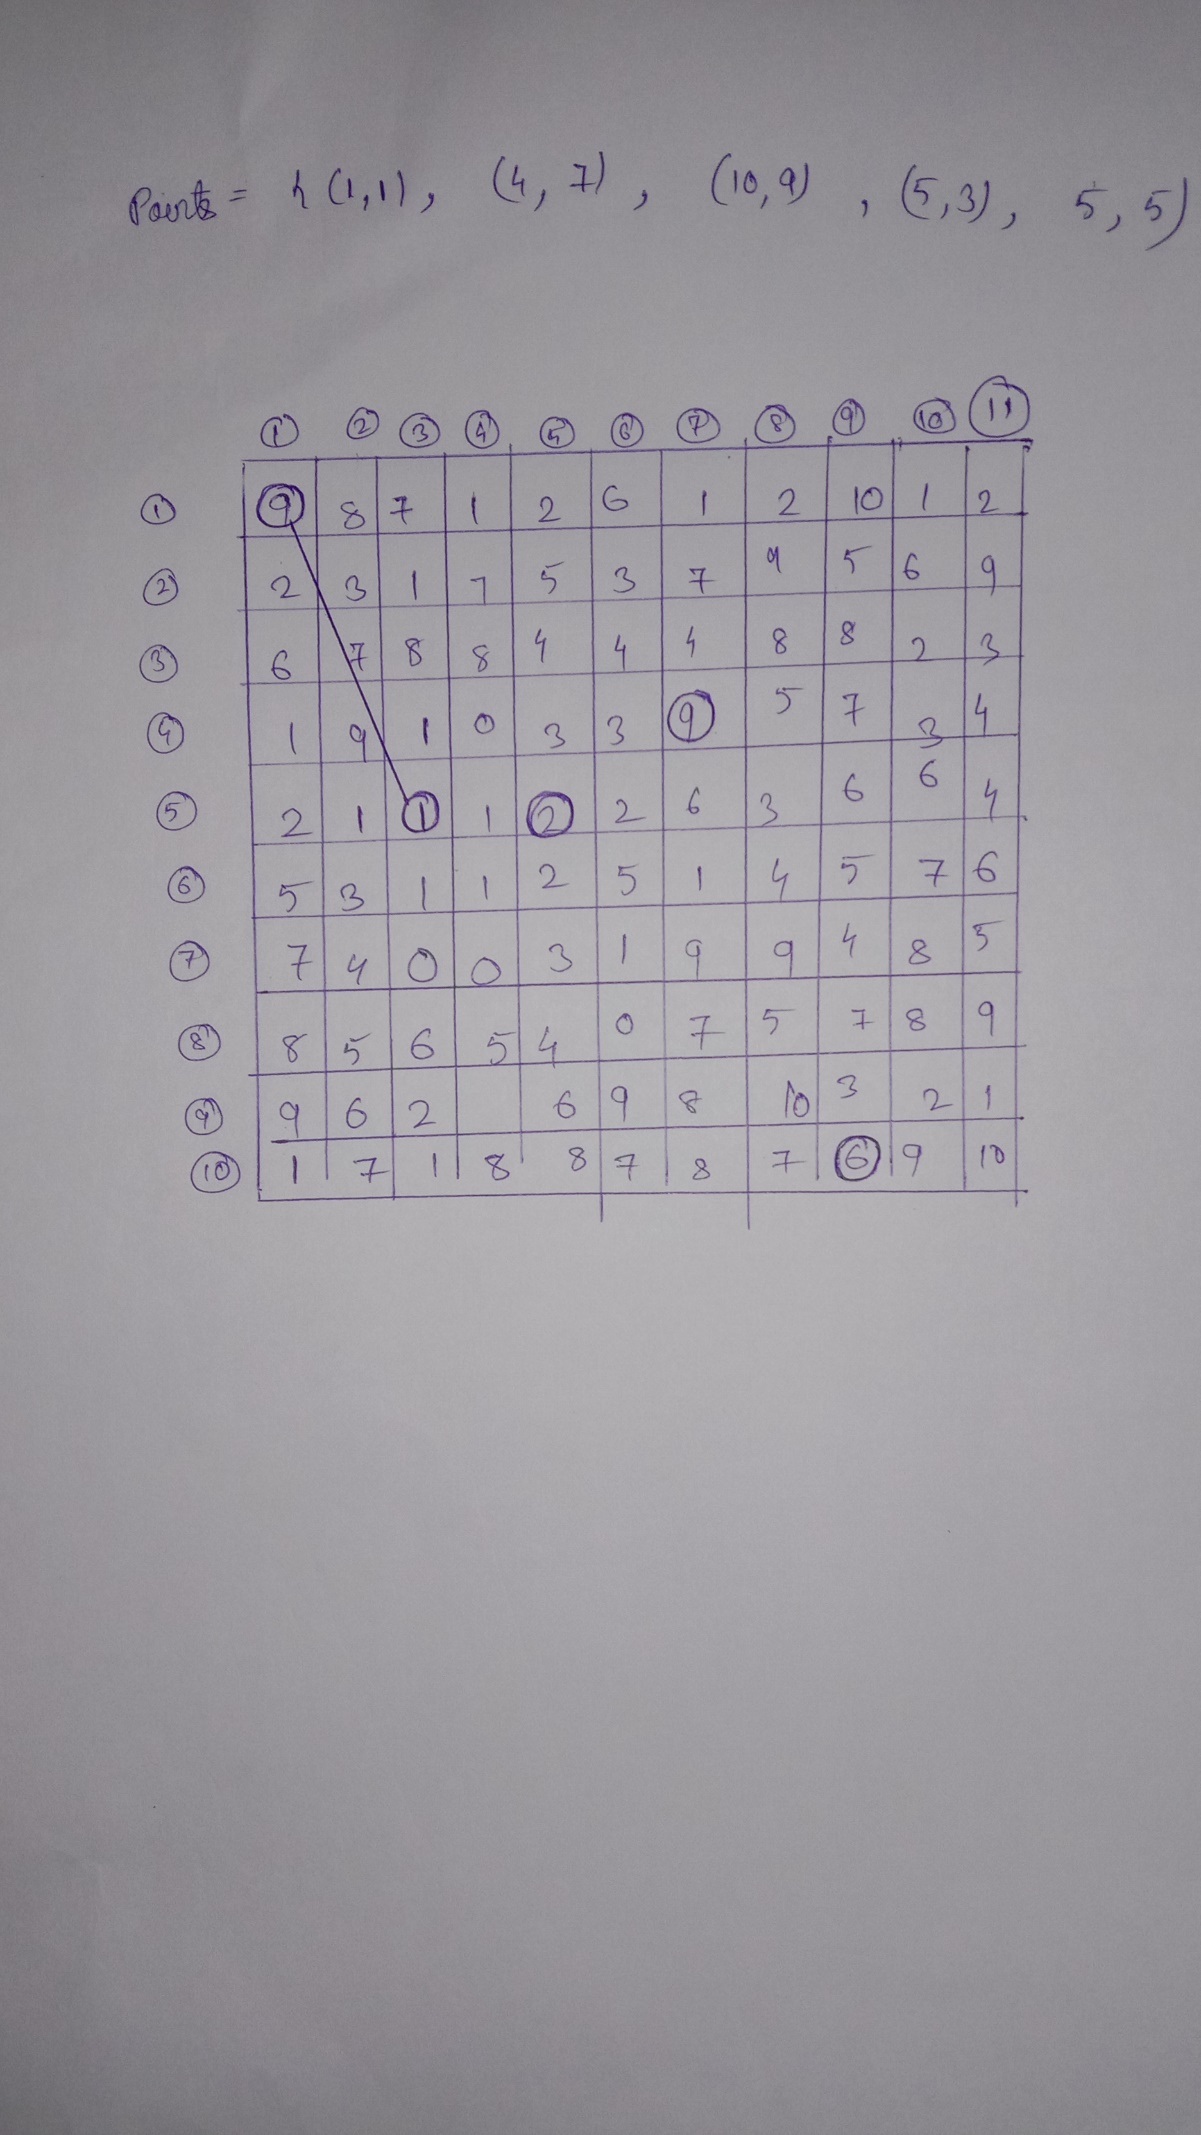 Points = { (1,1), (4, 7), (10,9), (5,3), 5, 5)
1 2 3 4 5 6 7 8 9 10 11
1 9 8 7 1 2 6 1 2 10 1 2
2 2 3 1 7 5 3 7 9 5 6 9
3 6 7 8 8 4 4 4 8 8 2 3
4 1 9 1 0 3 3 9 5 7 3 4
5 2 1 1 1 2 2 6 3 6 6 4
6 5 3 1 1 2 5 1 4 5 7 6
7 7 4 0 0 3 1 9 9 4 8 5
8 8 5 6 5 4 0 7 5 7 8 9
9 9 6 2 6 9 8 10 3 2 1
10 1 7 1 8 8 7 8 7 6 9 10